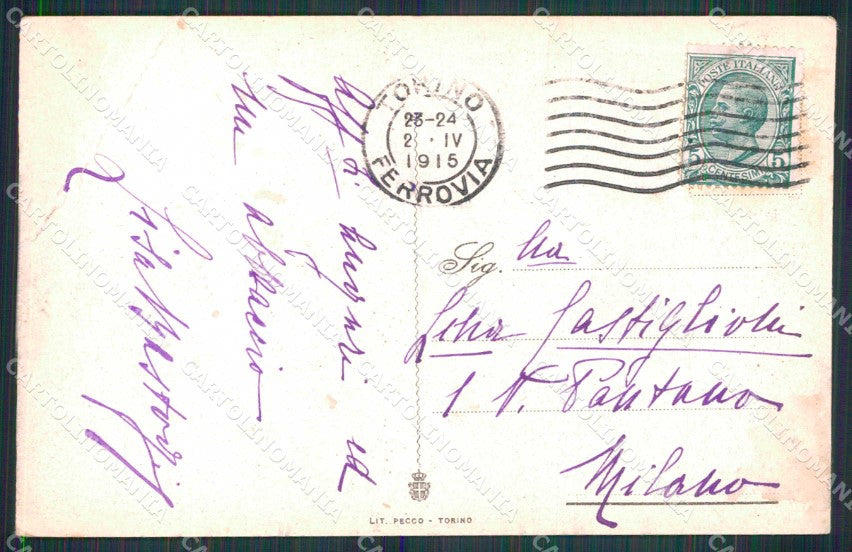 Aff.i auguri ed
un abbraccio
TORINO
23-24
2 . IV
1915
FERROVIA
POSTE ITALIANE
5 CENTESIMI 5
Sig. na
Lina Castiglioni
1 V. Pantano
Milano
LIT. PECCO - TORINO
CARTOLINOMANIA